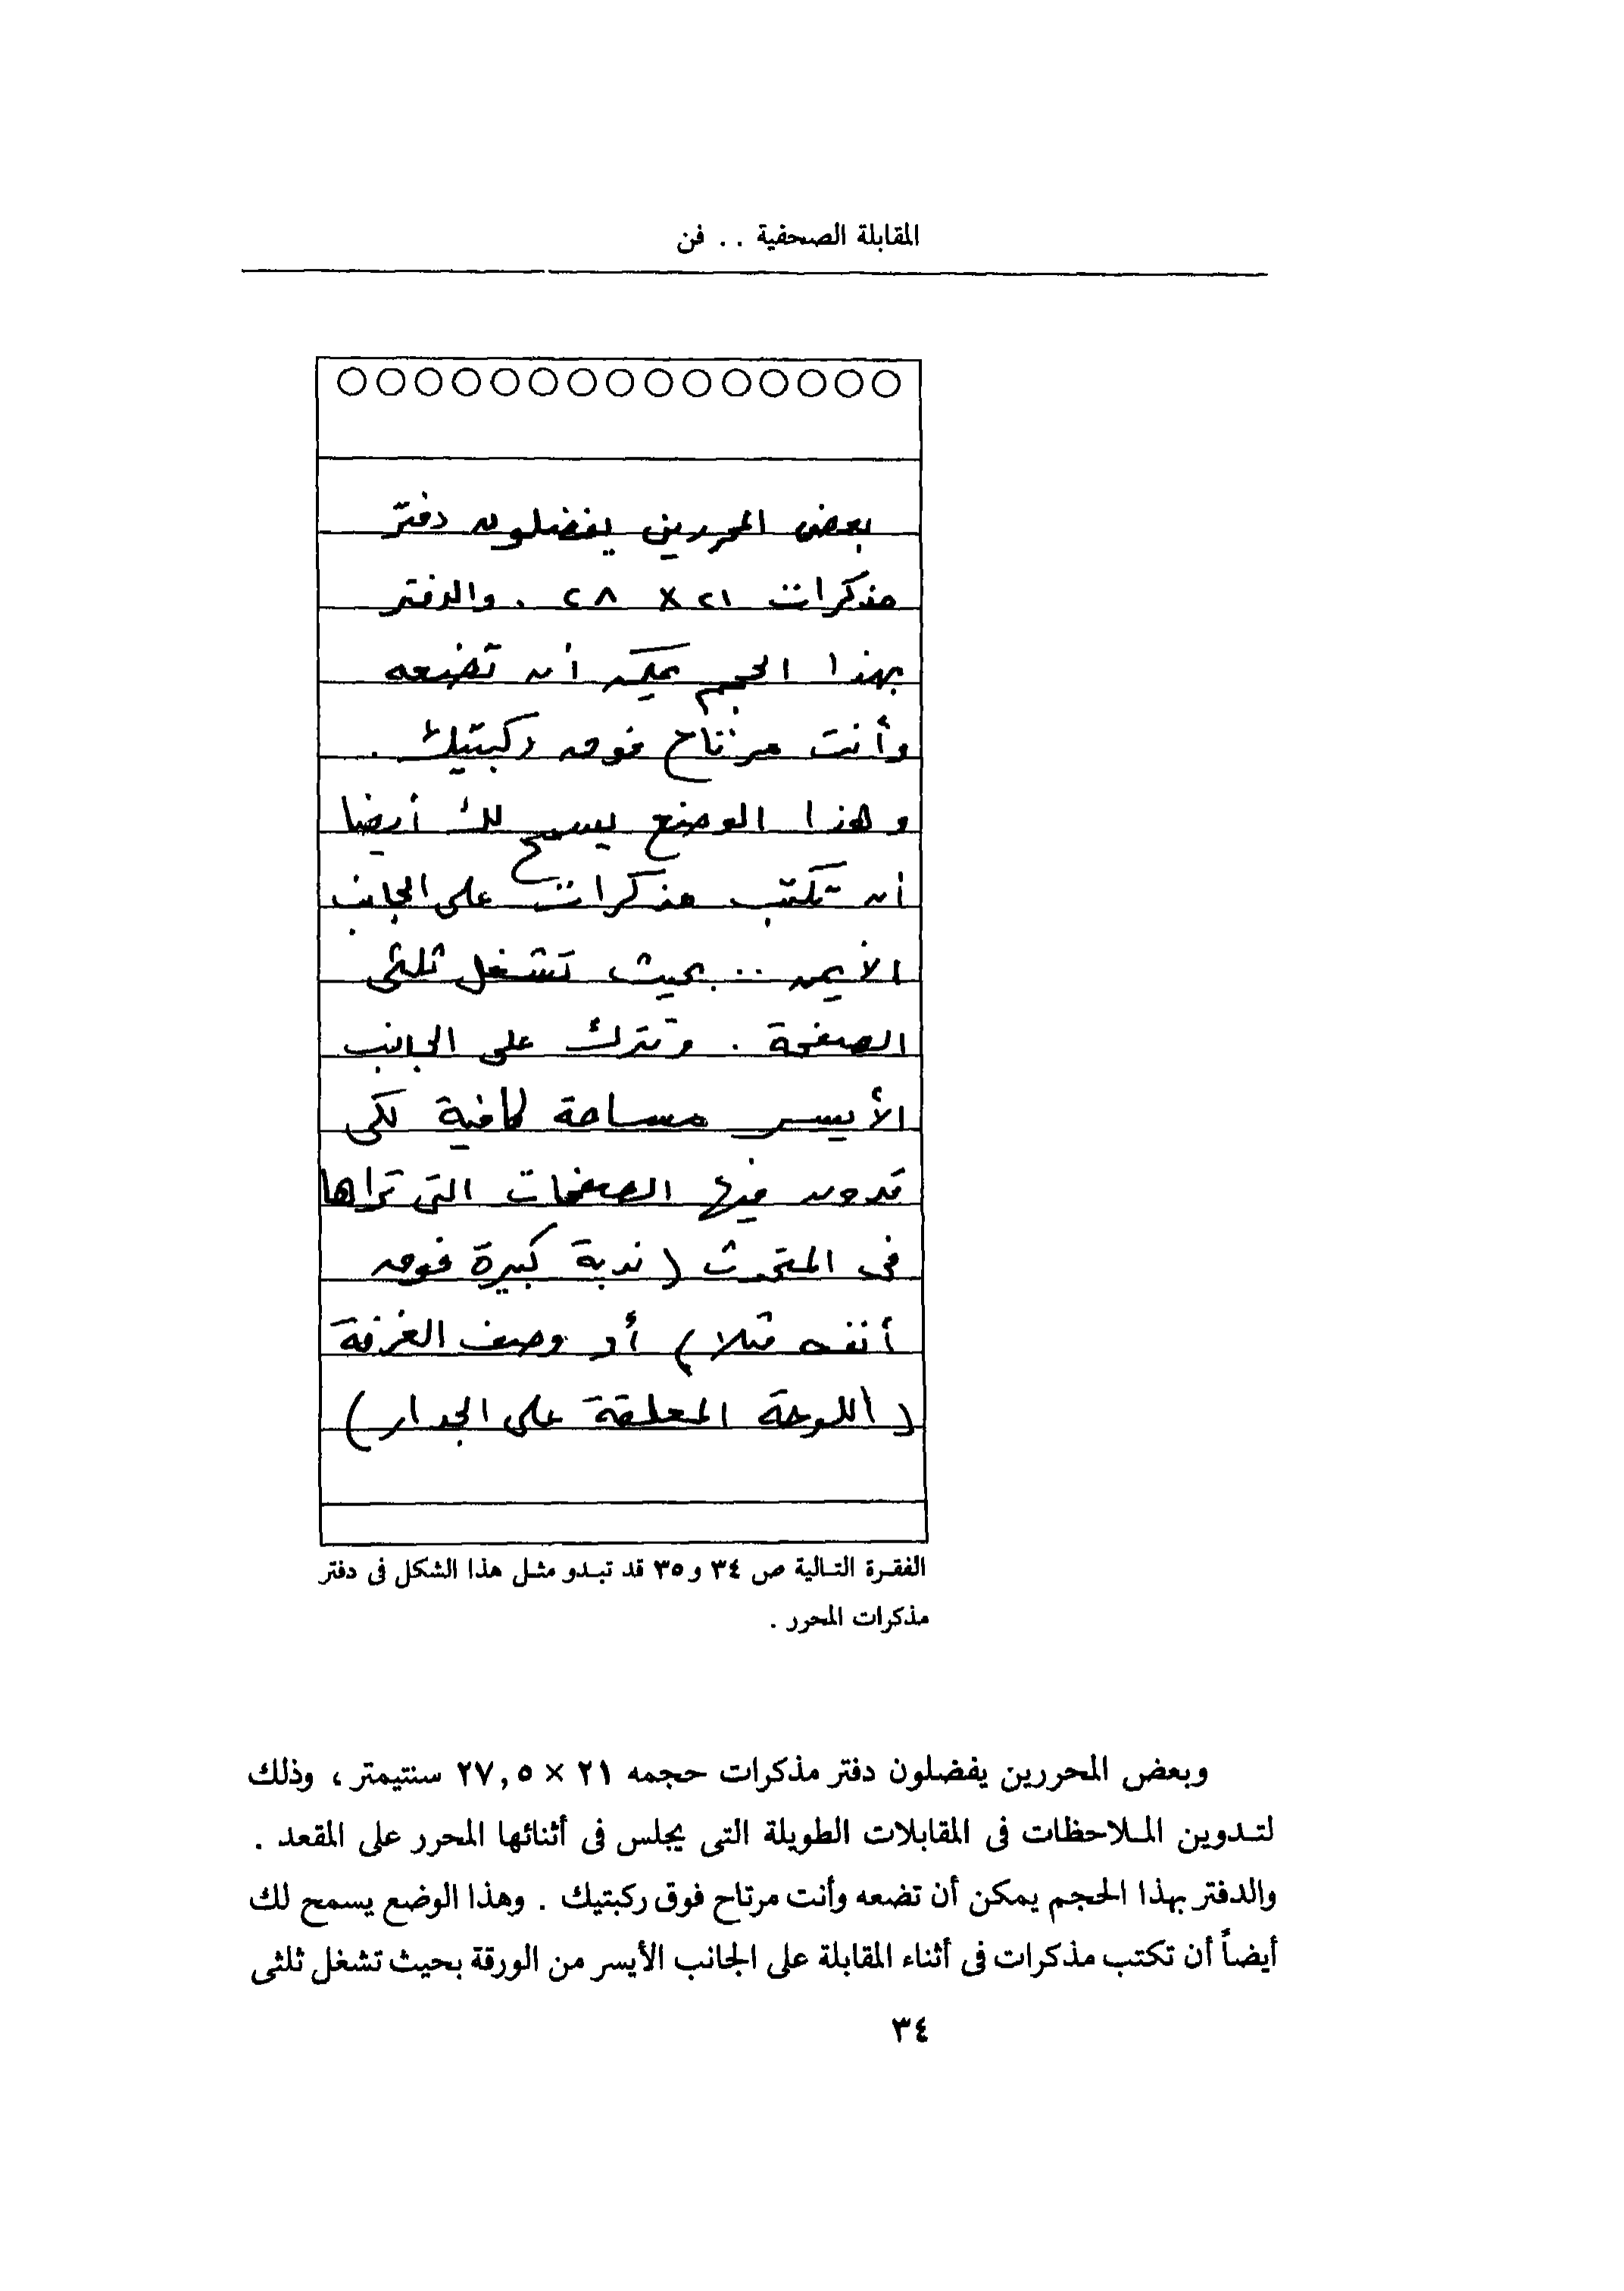 المقابلة الصحفية . . فن
بعض المحررين يفضلون دفتر
مذكرات ٢١ × ٢٨ . والدفتر
بهذا الحجم يمكن أن تضعه
وأنت مرتاح فوق ركبتيك .
وهذا الوضع يسمح لك أيضا
أن تكتب مذكرات على الجانب
الأيمن .. بحيث تشغل ثلثى
الصفحة . وتترك على الجانب
الأيسر مساحة كافية لكى
تدون فيها الصفات التى تراها
فى المتحدث ( ندبة كبيرة فوق
أنفه مثلا ) أو وصف الغرفة
( اللوحة المعلقة على الجدار )
الفقرة التالية ص ٣٤ و ٣٥ قد تبدو مثل هذا الشكل فى دفتر
مذكرات المحرر .
وبعض المحررين يفضلون دفتر مذكرات حجمه ٢١ × ٢٧,٥ سنتيمتر ، وذلك
لتدوين الملاحظات فى المقابلات الطويلة التى يجلس فى أثنائها المحرر على المقعد .
والدفتر بهذا الحجم يمكن أن تضعه وأنت مرتاح فوق ركبتيك . وهذا الوضع يسمح لك
أيضاً أن تكتب مذكرات فى أثناء المقابلة على الجانب الأيسر من الورقة بحيث تشغل ثلثى
٣٤